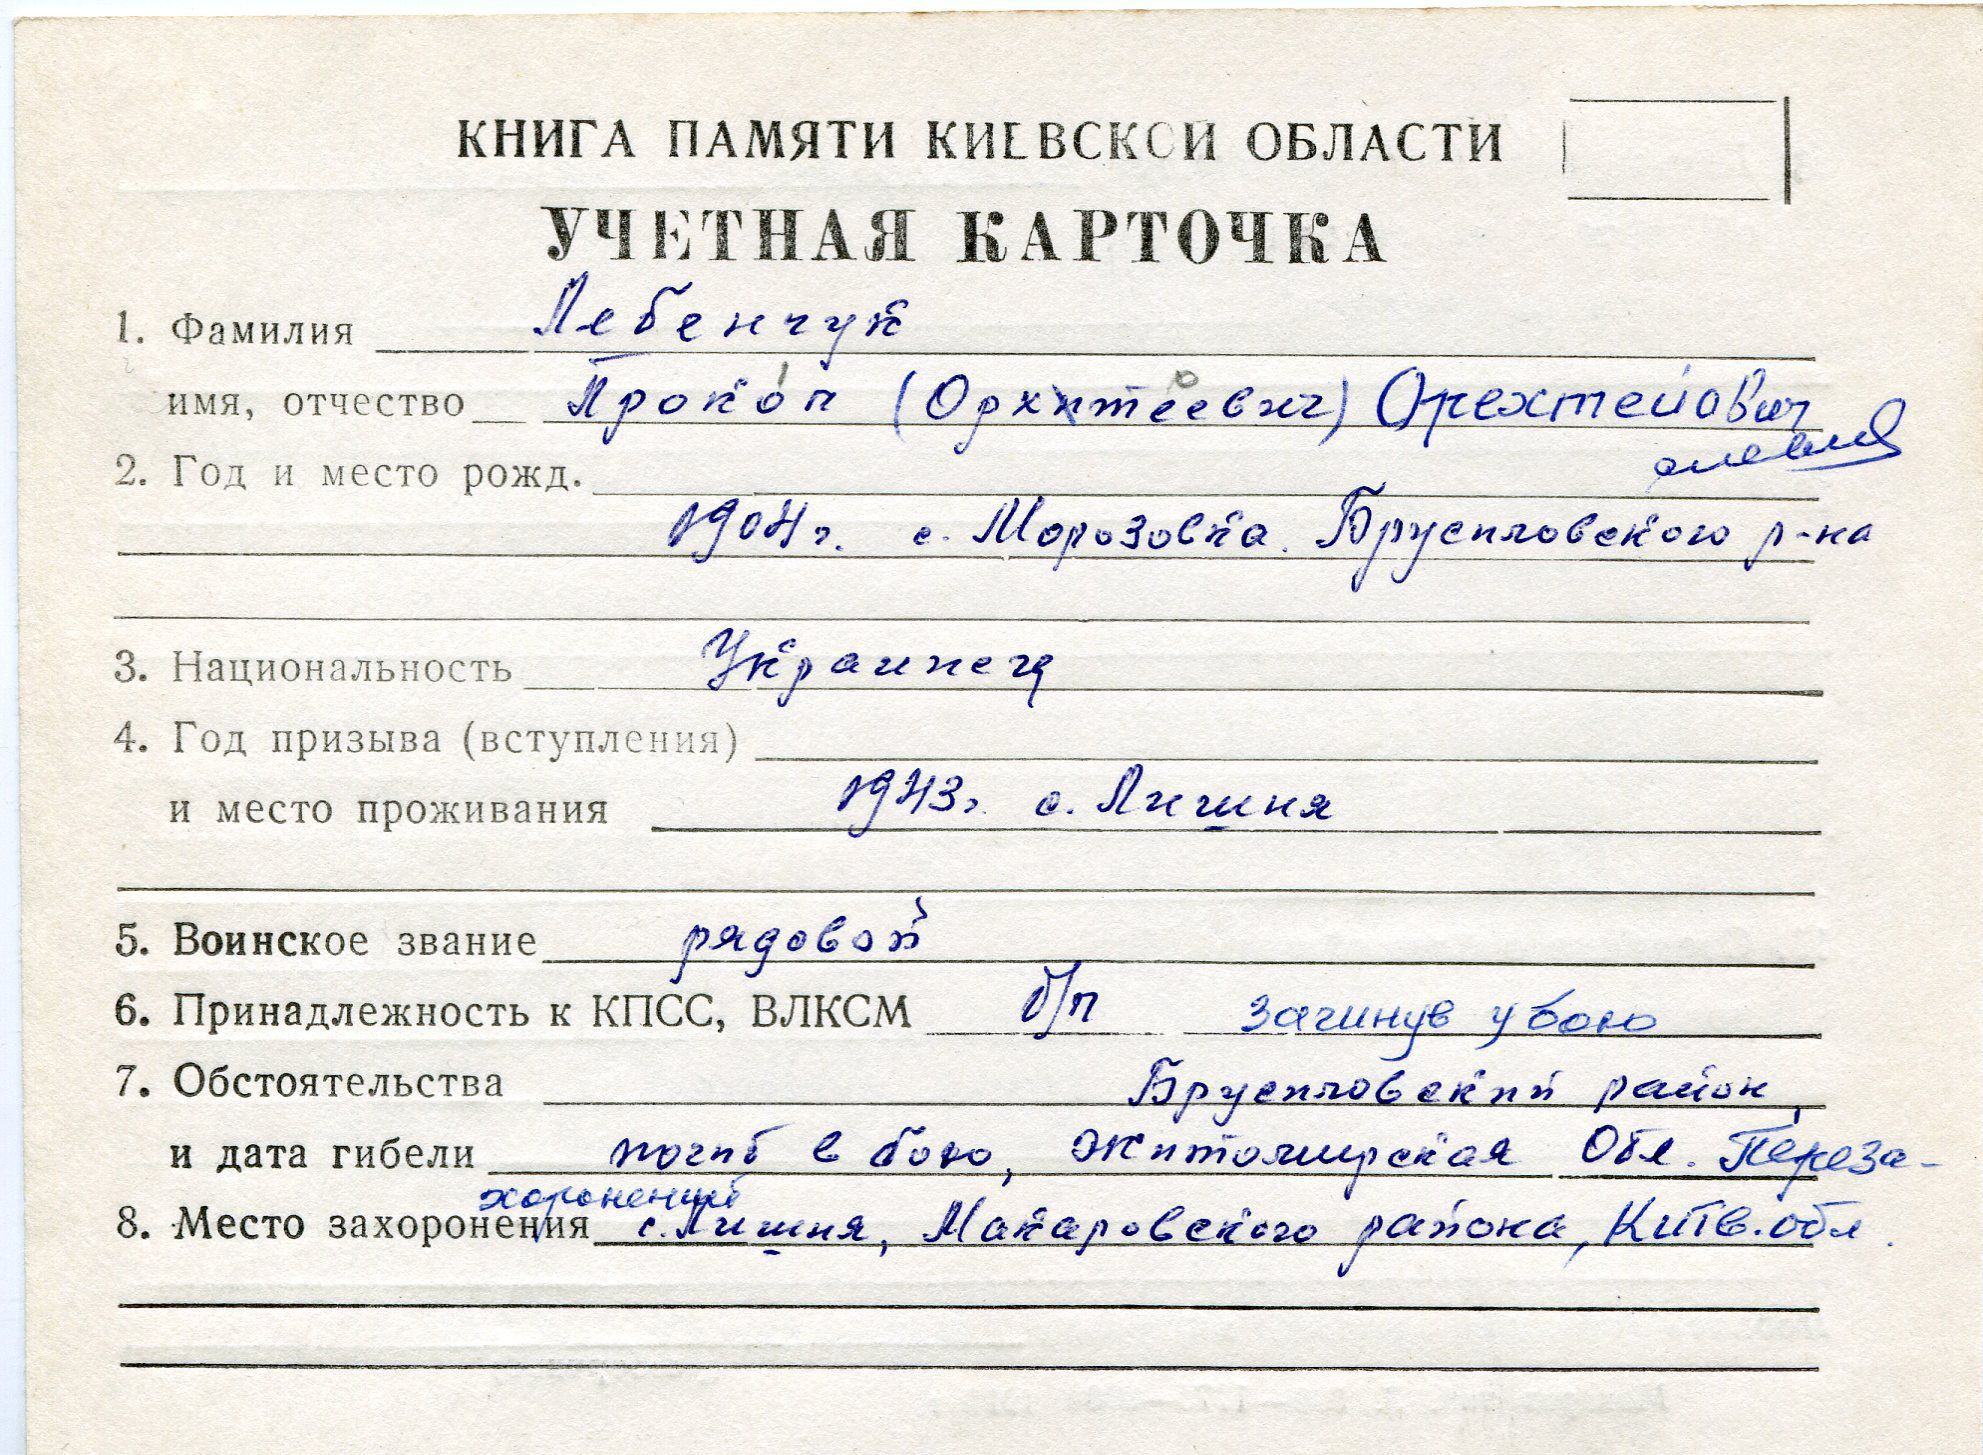 КНИГА ПАМЯТИ КИЕВСКОЙ ОБЛАСТИ
УЧЕТНАЯ КАРТОЧКА
1. Фамилия Лебенчук
имя, отчество Прокоп (Орхтеевич) Орехтейович
2. Год и место рожд.
1904г. с. Морозовка. Брусиловского р-на
3. Национальность Украинец
4. Год призыва (вступления)
и место проживания 1943г. с. Лишня
5. Воинское звание рядовой
6. Принадлежность к КПСС, ВЛКСМ б/п загинув у бою
7. Обстоятельства Брусиловский район,
и дата гибели погиб в бою, Житомирская Обл. Переза-
хоронений
8. Место захоронения с. Лишня, Макаровского района, Київ. обл.